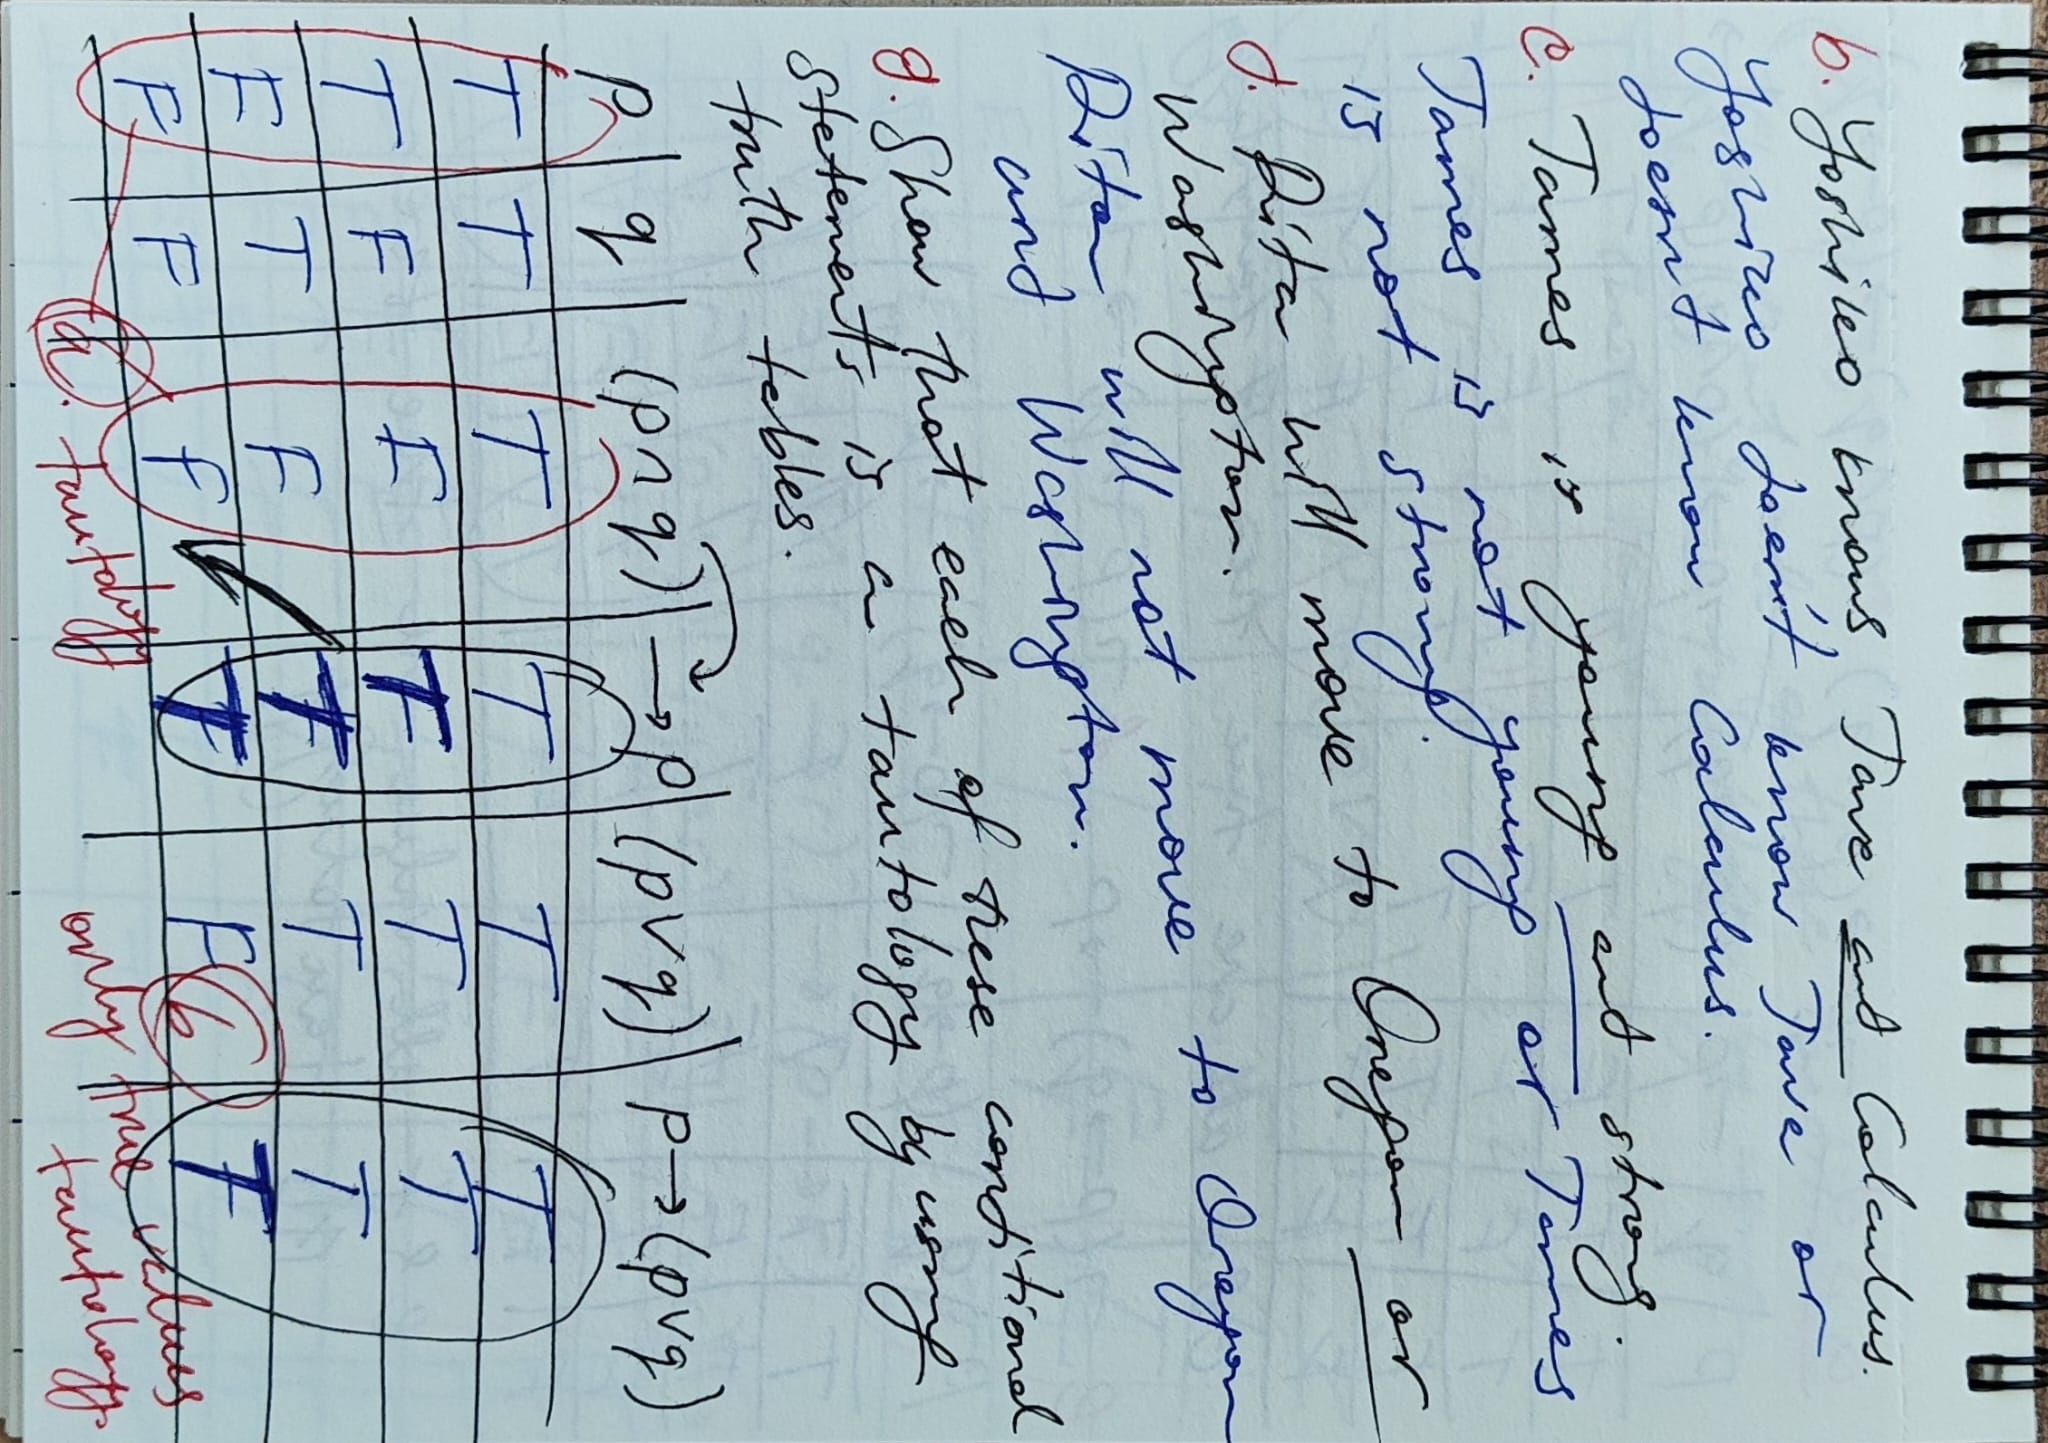 b. Yoshiko knows Java and Calculus.
Yoshiko doesn't know Java or
doesnt know Calculus.
c. James is young and strong.
James is not young or James
is not strong.
d. Rita will move to Oregon or
Washington.
Rita will not move to Oregon
and Washington.
9. Show that each of these conditional
statements is a tautology by using
truth tables.
p | q | (p∧q) | → p | (p∨q) | p→(p∨q)
T T T T T T
T F F T T T
F T F T T T
F F F T F T
a. tautology
b only true values
tautology